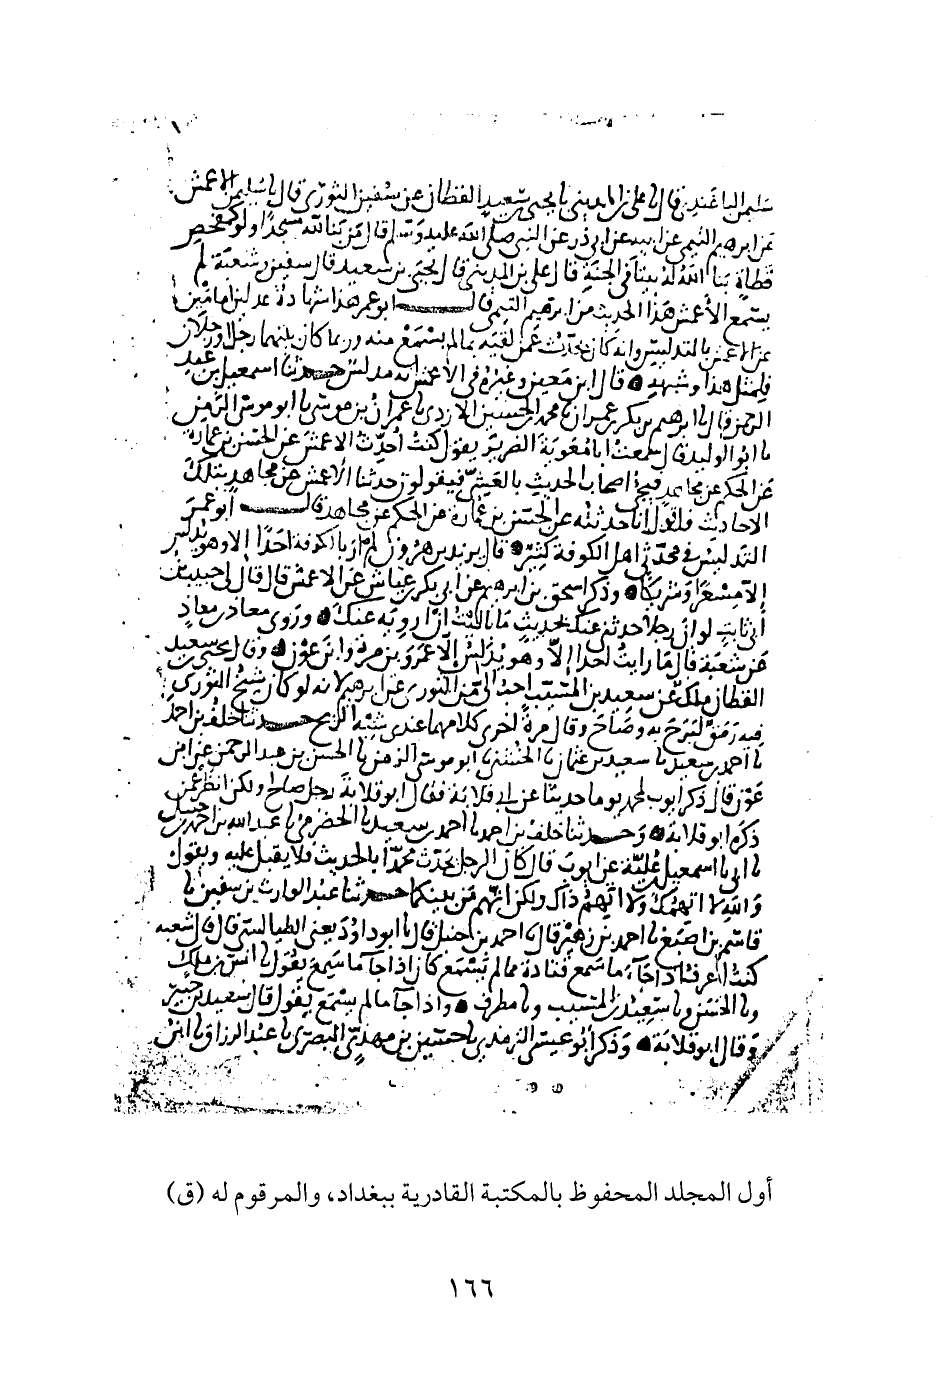 سليمن الباغندي قال نا علي بن المديني نا يحيى بن سعيد القطان عن سفين الثوري قال نا سليمن الاعمش
عن ابرهيم التيمي عن ابيه عن ابي ذر عن النبي صلى الله عليه وسلم قال من بنا لله مسجدا ولو كمفحص
قطاة بنا الله له بيتا في الجنة قال علي بن المديني قال يحيى بن سعيد قال سفين وشعبة لم
يسمع الأعمش هذا الحديث من ابرهيم التيمي قال ابو عمر هذا شهادة عدلين امامين
على الاعمش بالتدليس وانه كان يحدث عمن لقيه بما لم يسمع منه وربما كان بينهما رجل او رجلان
فلمثل هذا وشبهه قال ابن معين وغيره في الاعمش انه مدلس حدثنا اسمعيل بن عبد
الرحمن قال نا ابرهيم بن بكر بن عمران نا محمد بن الحسين الازدي نا عمران بن موسى نا ابو موسى الزمن
نا ابو الوليد قال سمعت ابا معوية الضرير يقول كنت احدث الاعمش عن الحسن بن عمارة
عن الحكم عن مجاهد فيجئ اصحاب الحديث بالعشي فيقولون حدثنا الأعمش عن مجاهد بتلك
الاحاديث فاقول انا حدثته عن الحسن بن عمارة عن الحكم عن مجاهد قال ابو عمر
التدليس في محدثي اهل الكوفة كثير قال يزيد بن هرون لم ار بالكوفة احدا الا وهو يدلس
الا مسعرا وشريكا وذكر اسحق بن ابرهيم عن ابي بكر بن عياش عن الاعمش قال قال لي حبيب بن
أبي ثابت لو ان رجلا حدثني عنك بحديث ما باليت ان ارويه عنك وروى معاذ بن معاذ
عن شعبة قال ما رايت احدا إلا وهو يدلس إلا عمرو بن مرة وابن عون وقال يحيى بن سعيد
القطان ملك عن سعيد بن المسيب احب الي من الثوري عن ابرهيم لانه لو كان شيخ الثوري
فيه رمق لبرح به وصاح وقال مرة اخرى كلاهما عندي شبه الريح حدثنا خلف بن احمد
نا احمد بن سعيد نا سعيد بن عثمان نا الخشني نا ابو موسى الزمن نا الحسن بن عبد الرحمن عن ابن
عون قال ذكر ايوب لمحمد يوما حديثا عن ابي قلابة فقال ابو قلابة رجل صالح ولكن انظر عمن
ذكره ابو قلابة وحدثنا خلف بن احمد نا احمد بن سعيد نا الحضرمي نا عبد الله بن احمد بن حنبل
نا ابي نا اسمعيل بن علية عن ايوب قال كان الرجل يحدث محمدا بالحديث فلا يقبل عليه ويقول
والله ما اتهمك ولا اتهم ذاك ولكن اتهم من بينكما حدثنا عبد الوارث بن سفين نا
قاسم بن اصبغ نا احمد بن زهير قال نا احمد بن حنبل قال نا ابو داود يعني الطيالسي قال قال شعبة
كنت اعرف اذا جاء ما سمع قتادة مما لم يسمع كان اذا جا ما سمع يقول نا انس بن ملك
ونا الحسن ونا سعيد بن المسيب ونا مطرف واذا جا ما لم يسمع يقول قال سعيد بن جبير
وقال ابو قلابة وذكر ابو عيسى الترمذي نا حسين بن مهدي البصري نا عبد الرزاق نا ابن
أول المجلد المحفوظ بالمكتبة القادرية ببغداد، والمرقوم له (ق)
١٦٦